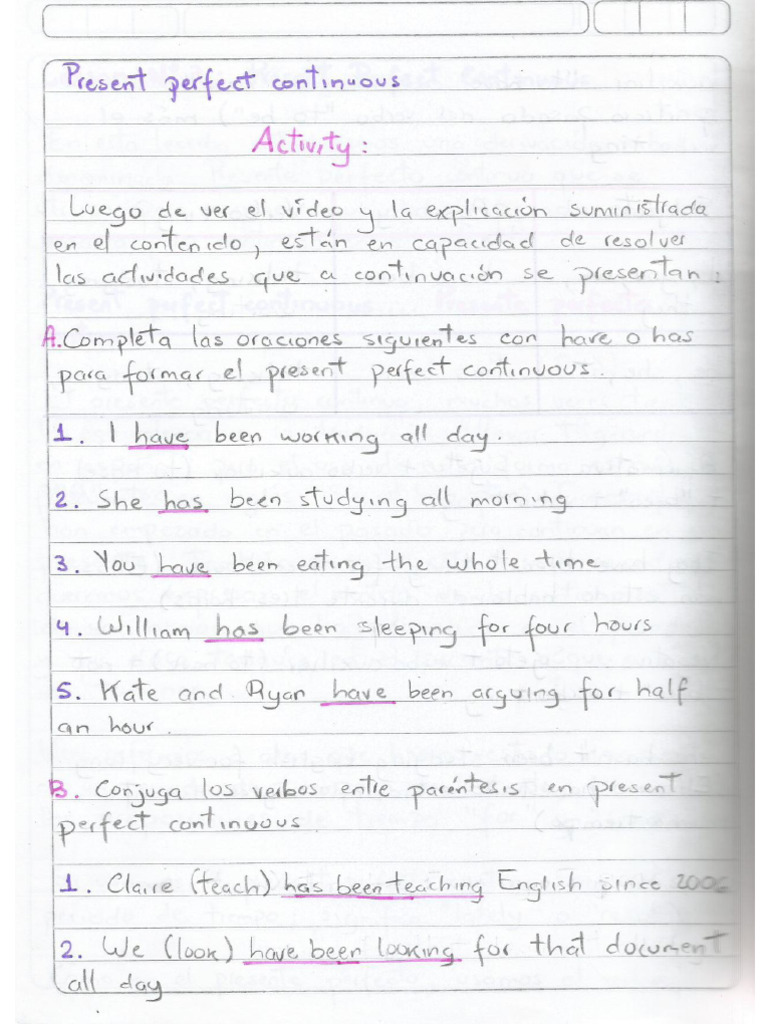 Present perfect continuous
Activity:
Luego de ver el vídeo y la explicación suministrada
en el contenido, están en capacidad de resolver
las actividades que a continuación se presentan:
A. Completa las oraciones siguientes con have o has
para formar el present perfect continuous.
1. I have been working all day.
2. She has been studying all morning
3. You have been eating the whole time
4. William has been sleeping for four hours
5. Kate and Ryan have been arguing for half
an hour.
B. Conjuga los verbos entre paréntesis en present
perfect continuous.
1. Claire (teach) has been teaching English since 2006
2. We (look) have been looking for that document
all day